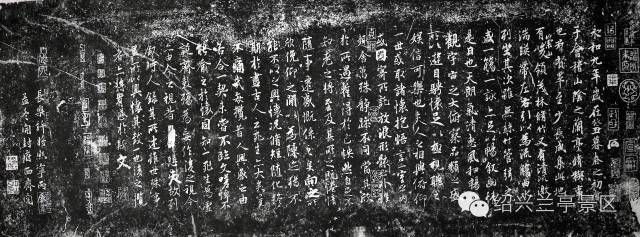 永和九年歲在癸丑暮春之初會
于會稽山陰之蘭亭脩稧事
也群賢畢至少長咸集此地
有崇山峻領茂林脩竹又有清流激
湍暎帶左右引以為流觴曲水
列坐其次雖無絲竹管弦之
盛一觴一詠亦足以暢敘幽情
是日也天朗氣清惠風和暢仰
觀宇宙之大俯察品類之盛
所以遊目騁懷足以極視聽之
娛信可樂也夫人之相與俯仰
一世或取諸懷抱悟言一室之內
或因寄所託放浪形骸之外雖
趣舍萬殊靜躁不同當其欣
於所遇蹔得於己怏然自足不
知老之將至及其所之既惓情
隨事遷感慨係之矣向之所
欣俛仰之閒以為陳跡猶不
能不以之興懷況脩短隨化終
期於盡古人云死生亦大矣豈
不痛哉每攬昔人興感之由
若合一契未嘗不臨文嗟悼不
能喻之於懷固知一死生為虛
誕齊彭殤為妄作後之視今
亦由今之視昔悲夫故列
敘時人錄其所述雖世殊事
異所以興懷其致一也後之攬
者亦將有感於斯文
長樂許將熙寧丙辰
孟冬開封府西齋閱
绍兴兰亭景区